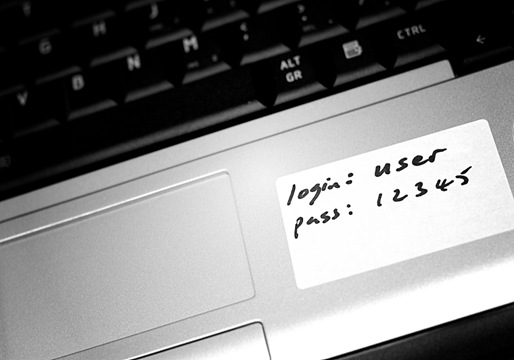 F J
G H
V B N M
ALT GR CTRL
login: user
pass: 12345